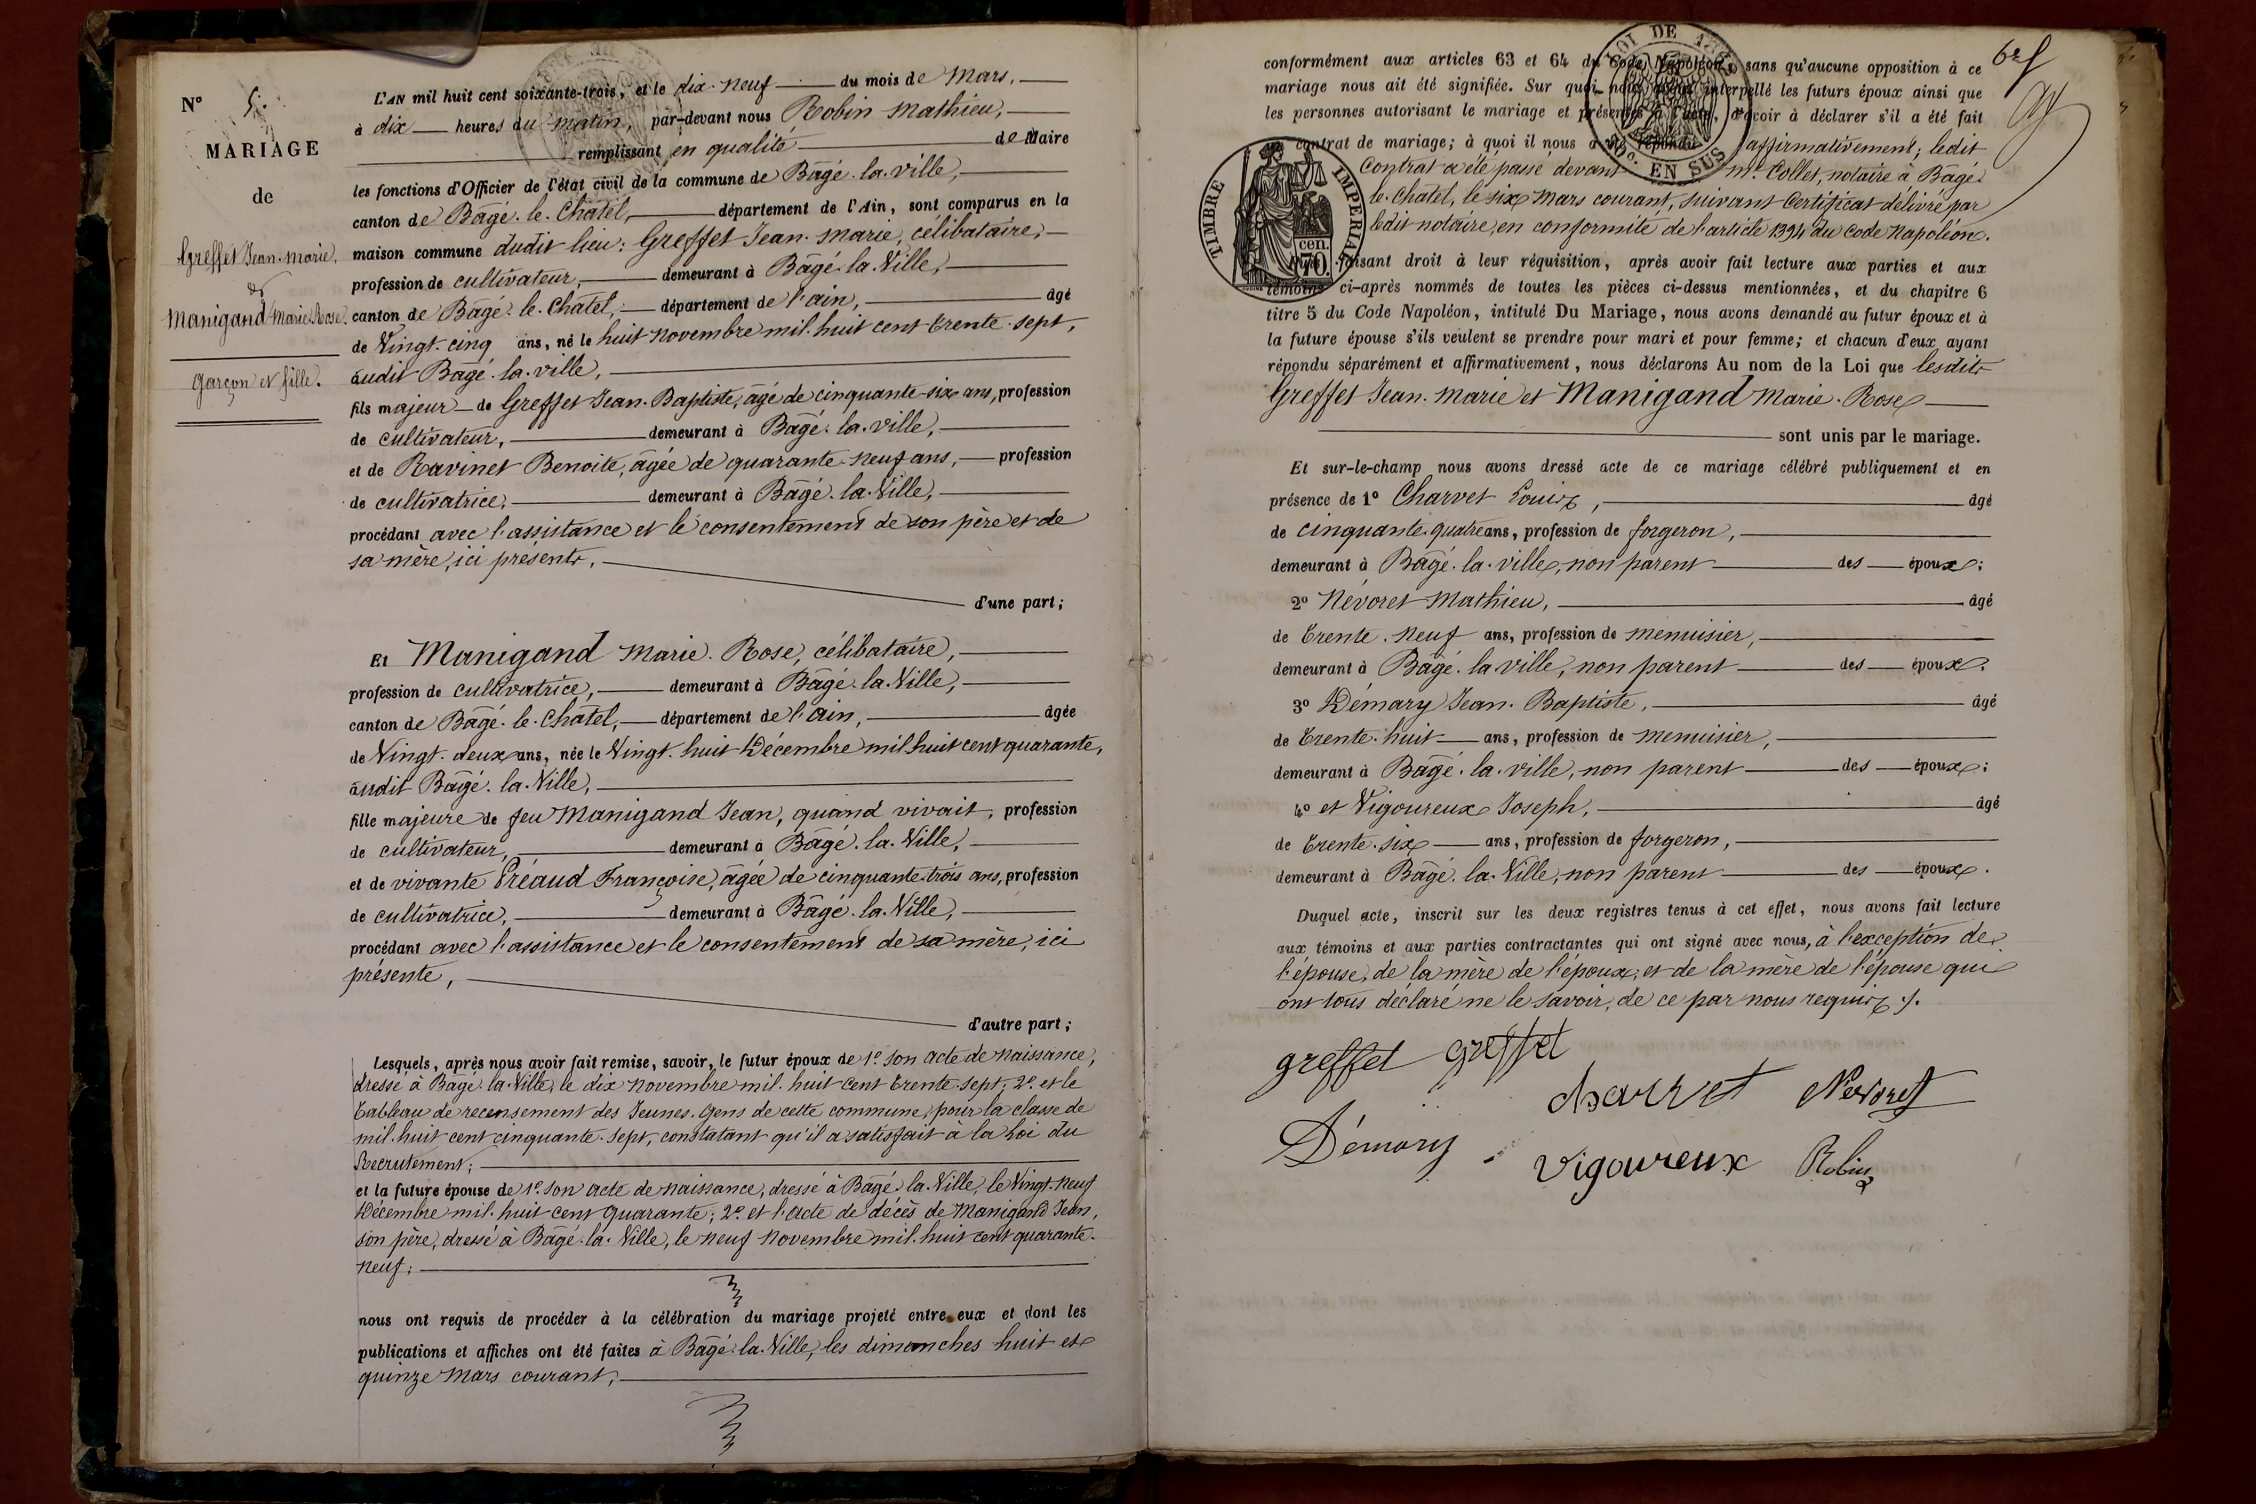 N° 5.
MARIAGE
de
Greffet Jean-Marie,
et
Manigand Marie Rose.
garçon et fille.
L'AN mil huit cent soixante-trois, et le dix-neuf du mois de Mars,
à dix heures du matin, par-devant nous Robin Mathieu,
remplissant en qualité de Maire
les fonctions d'Officier de l'état civil de la commune de Bâgé-la-Ville,
canton de Bâgé-le-Châtel, département de l'Ain, sont comparus en la
maison commune dudit lieu: Greffet Jean-Marie, célibataire,
profession de cultivateur, demeurant à Bâgé-la-Ville,
canton de Bâgé-le-Châtel, département de l'ain, âgé
de Vingt-cinq ans, né le huit novembre mil-huit cent trente-sept,
audit Bâgé-la-ville,
fils majeur de Greffet Jean-Baptiste, âgé de cinquante-six ans, profession
de cultivateur, demeurant à Bâgé-la-ville,
et de Ravinet Benoite, âgée de quarante-neuf ans, profession
de cultivatrice, demeurant à Bâgé-la-Ville,
procédant avec l'assistance et le consentement de son père et de
sa mère, ici présents,
d'une part;
Et Manigand Marie-Rose, célibataire,
profession de cultivatrice, demeurant à Bâgé-la-Ville,
canton de Bâgé-le-Châtel, département de l'ain, âgée
de Vingt-deux ans, née le Vingt-huit Décembre mil huit cent quarante,
audit Bâgé-la-Ville,
fille majeure de feu Manigand Jean, quand vivait, profession
de cultivateur, demeurant à Bâgé-la-Ville,
et de vivante Préaud Françoise, âgée de cinquante-trois ans, profession
de cultivatrice, demeurant à Bâgé-la-Ville,
procédant avec l'assistance et le consentement de sa mère, ici
présente,
d'autre part;
Lesquels, après nous avoir fait remise, savoir, le futur époux de 1° son acte de naissance,
dressé à Bâgé-la-Ville, le dix novembre mil-huit cent trente-sept; 2° et le
Tableau de recensement des Jeunes-Gens de cette commune, pour la classe de
mil-huit cent cinquante-sept, constatant qu'il a satisfait à la Loi du
Recrutement;
et la future épouse de 1° son acte de naissance, dressé à Bâgé-la-Ville, le Vingt-neuf
Décembre mil-huit cent quarante; 2° et l'acte de décès de Manigand Jean,
son père, dressé à Bâgé-la-Ville, le neuf novembre mil-huit cent quarante-
neuf;
nous ont requis de procéder à la célébration du mariage projeté entre eux et dont les
publications et affiches ont été faites à Bâgé-la-Ville, les dimanches huit et
quinze Mars courant,
conformément aux articles 63 et 64 du Code Napoléon, sans qu'aucune opposition à ce
mariage nous ait été signifiée. Sur quoi nous avons interpellé les futurs époux ainsi que
les personnes autorisant le mariage et présentes à l'acte, d'avoir à déclarer s'il a été fait
contrat de mariage; à quoi il nous a été répondu affirmativement; ledit
Contrat a été passé devant Me Collet, notaire à Bâgé-
le-Chatel, le six Mars courant, suivant Certificat délivré par
ledit notaire, en conformité de l'article 1394 du Code Napoléon.
LOI DE
EN SUS
TIMBRE IMPERIAL
cen.
70.
faisant droit à leur réquisition, après avoir fait lecture aux parties et aux
témoins ci-après nommés de toutes les pièces ci-dessus mentionnées, et du chapitre 6
titre 5 du Code Napoléon, intitulé Du Mariage, nous avons demandé au futur époux et à
la future épouse s'ils veulent se prendre pour mari et pour femme; et chacun d'eux ayant
répondu séparément et affirmativement, nous déclarons Au nom de la Loi que lesdits
Greffet Jean-Marie et Manigand Marie-Rose
sont unis par le mariage.
Et sur-le-champ nous avons dressé acte de ce mariage célébré publiquement et en
présence de 1° Charvet Louis, âgé
de cinquante-quatre ans, profession de forgeron,
demeurant à Bâgé-la-ville, non parent des époux;
2° Nevoret Mathieu, âgé
de trente-neuf ans, profession de menuisier,
demeurant à Bâgé-la-ville, non parent des époux;
3° Démary Jean-Baptiste, âgé
de trente-huit ans, profession de menuisier,
demeurant à Bâgé-la-ville, non parent des époux;
4° et Vigoureux Joseph, âgé
de trente-six ans, profession de forgeron,
demeurant à Bâgé-la-Ville, non parent des époux.
Duquel acte, inscrit sur les deux registres tenus à cet effet, nous avons fait lecture
aux témoins et aux parties contractantes qui ont signé avec nous, à l'exception de
l'épouse, de la mère de l'époux, et de la mère de l'épouse qui
ont tous déclaré ne le savoir, de ce par nous requis ./.
greffet greffet
charvet Nevoret
Démary
Vigoureux Robin